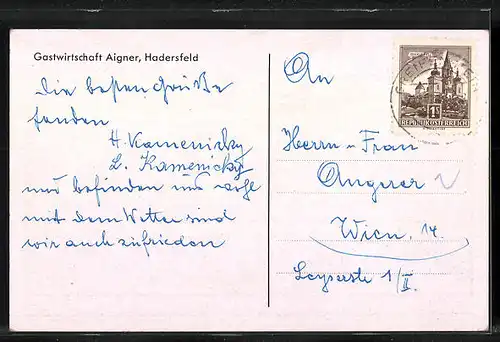 Gastwirtschaft Aigner, Hadersfeld
Die besten Grüße
senden
H. Kamenitzky
L. Kamenicky
und befinden uns wohl
mit dem Wetter sind
wir auch zufrieden
An
Herrn - Frau
Angerer
Wien. 14
Leyserstr 1/II.
1S
REPUBLIK ÖSTERREICH